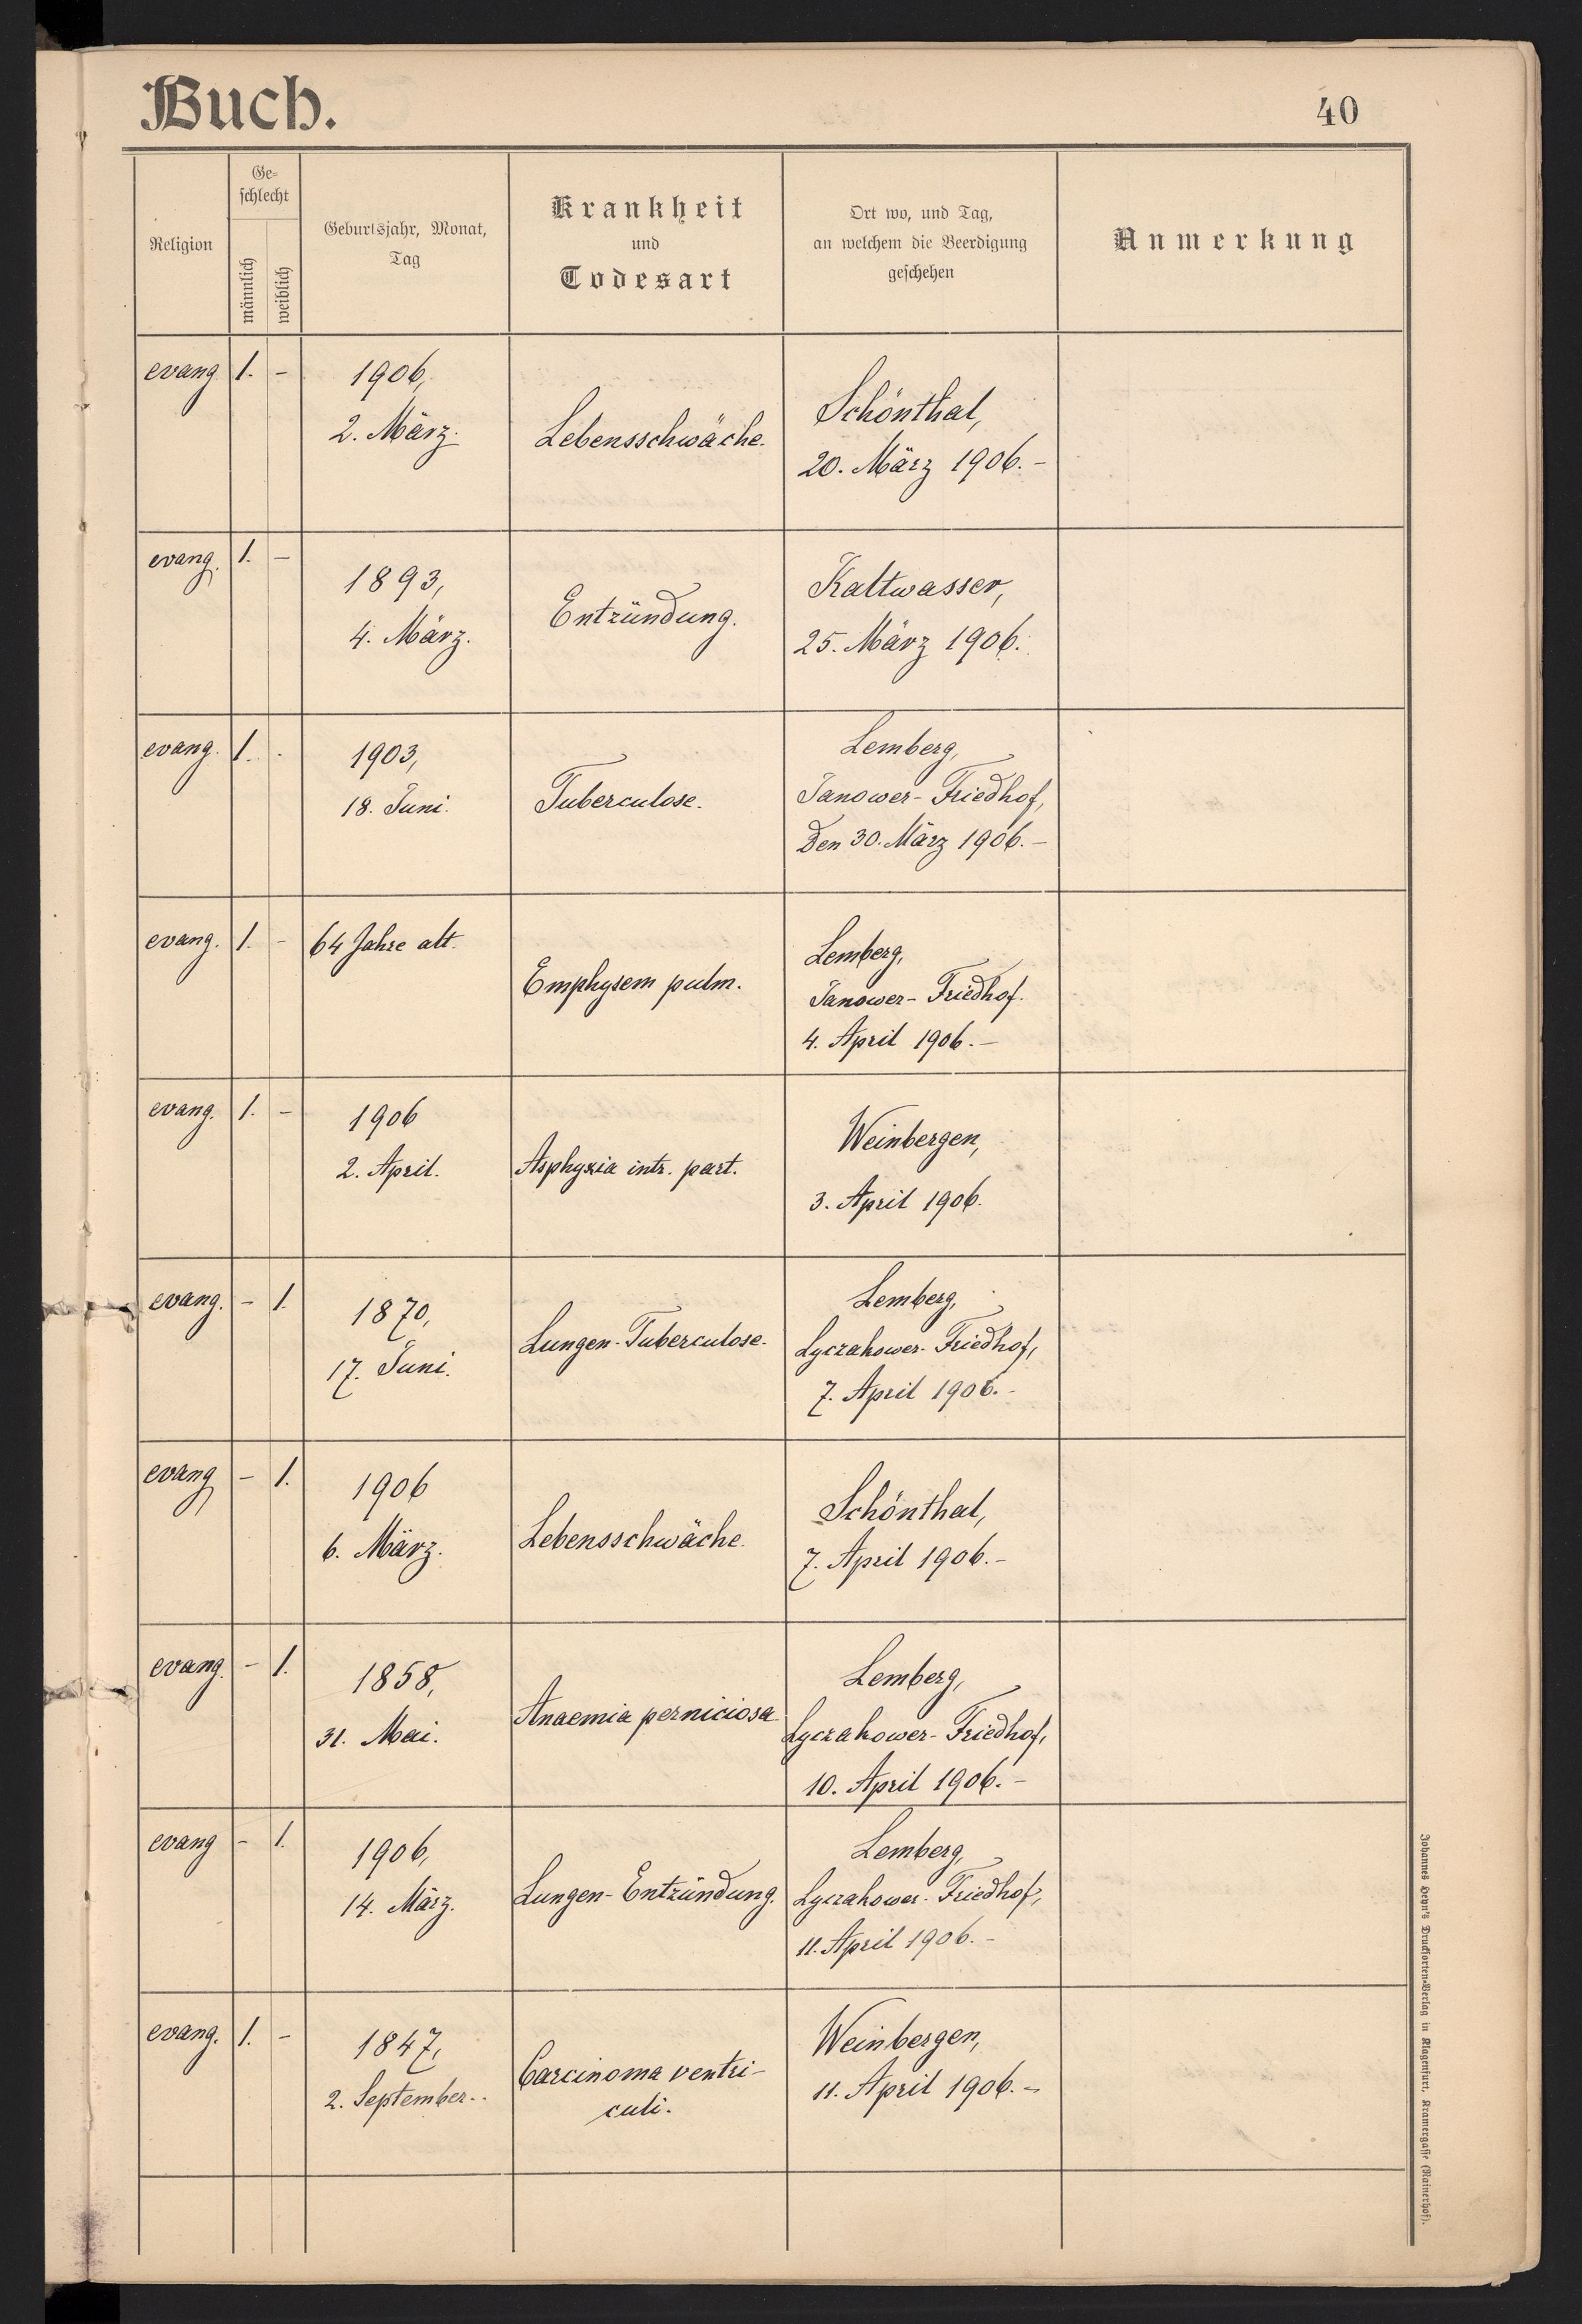 Buch.
40
Religion
Ge-
schlecht
männlich
weiblich
Geburtsjahr, Monat,
Tag
Krankheit
und
Todesart
Ort wo, und Tag,
an welchem die Beerdigung
geschehen
Anmerkung
evang. 1. –
1906,
2. März.
Lebensschwäche.
Schönthal,
20. März 1906. –
evang. 1. –
1893,
4. März.
Entzündung.
Kaltwasser,
25. März 1906.
evang. 1. -
1903,
18. Juni.
Tuberculose.
Lemberg,
Janower-Friedhof,
den 30. März 1906. –
evang. 1. –
64 Jahre alt.
Emphysem pulm.
Lemberg,
Janower-Friedhof.
4. April 1906. –
evang. 1. –
1906
2. April.
Asphyxia intr. part.
Weinbergen,
3. April 1906.
evang. – 1.
1870,
17. Juni.
Lungen-Tuberculose.
Lemberg,
Lyczakower-Friedhof,
7. April 1906. -
evang – 1.
1906
6. März.
Lebensschwäche.
Schönthal,
7. April 1906. –
evang. – 1.
1858,
31. Mai.
Anaemia perniciosa
Lemberg,
Lyczakower-Friedhof,
10. April 1906. –
evang – 1.
1906,
14. März.
Lungen-Entzündung.
Lemberg,
Lyczakower-Friedhof,
11. April 1906. –
evang. 1. –
1847,
2. September.
Carcinoma ventri-
culi.
Weinbergen,
11. April 1906. –
Johannes Heyn's Drucksorten-Verlag in Klagenfurt, Kramergasse (Rainerhof).